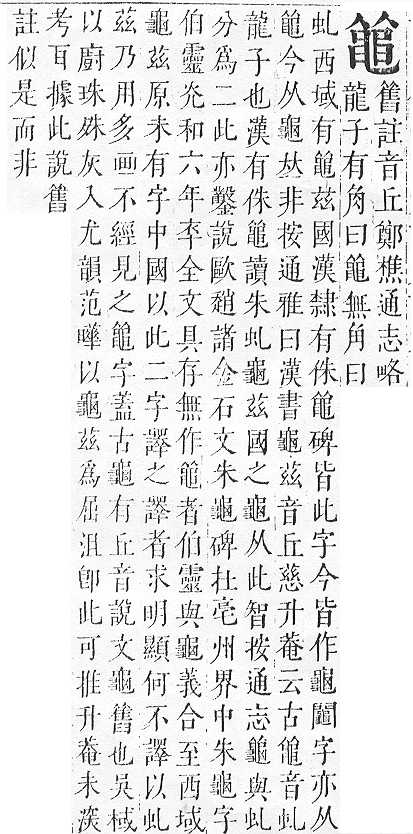 舊註音丘鄭樵通志略
龍子有角曰無角曰
虬西域有茲國漢隸有侏碑皆此字今皆作龜鬮字亦从
今从龜夶非按通雅曰漢書龜茲音丘慈升菴云古音虬
龍子也漢有侏讀朱虬龜茲國之龜从此智按通志龜與虬
分爲二此亦鑿說歐趙諸金石文朱龜碑在亳州界中朱龜字
伯靈光和六年李全文具存無作者伯靈與龜義合至西域
龜茲原未有字中國以此二字譯之譯者求明顯何不譯以虬
茲乃用多画不經見之龜字蓋古龜有丘音說文龜舊也吳棫
以廚珠姝灰入尤韻范曄以龜茲爲屈沮卽此可推升菴未深
考耳據此說舊
註似是而非